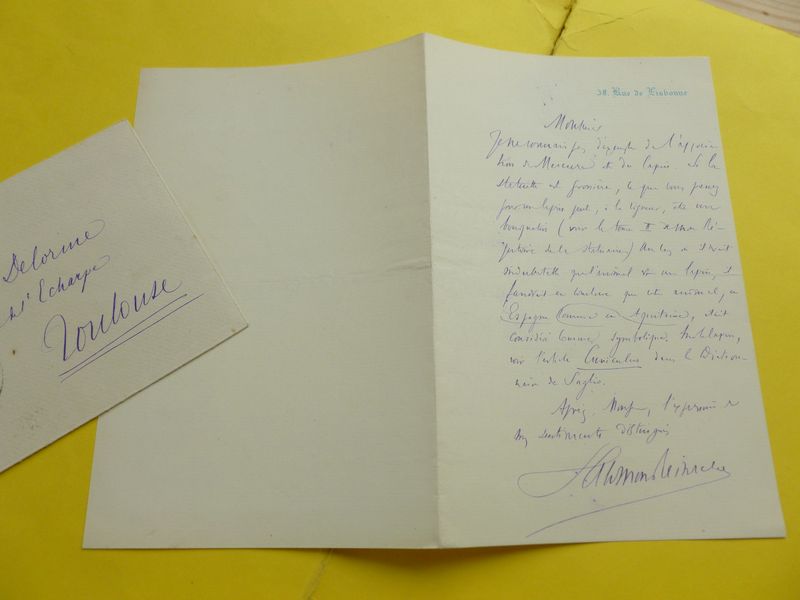 Delorme
de l'Echarpe
Toulouse
38. Rue de Lisbonne
Monsieur
Je ne connais pas d'exemple de l'associa-
tion de Mercure et du lapin. Si la
statuette est grossière, ce que vous prenez
pour un lapin peut, à la rigueur, être un
bouquetin (voir le tome II de mon Ré-
pertoire de la statuaire)
indubitable que l'animal est un lapin, il
faudrait en conclure que cet animal, en
Espagne comme en Aquitaine, était
considéré comme symbolique. Sur le lapin,
voir l'article Cuniculus dans le Diction-
naire de Saglio.
Agréez, Monsieur, l'expression de
mes sentiments distingués
Salomon Reinach